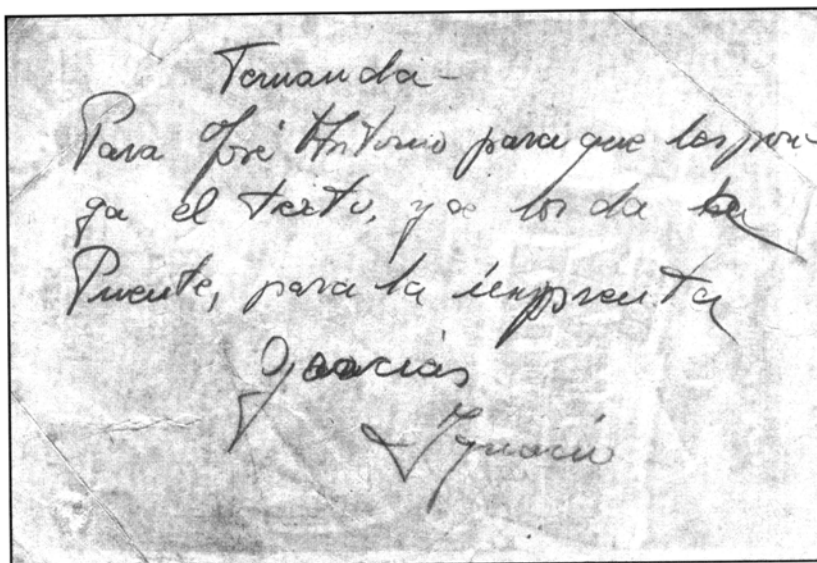 Fernanda-
Para José Antonio para que las pon-
ga el texto, y se los da a
Puente, para la imprenta
Gracias
Ignacio